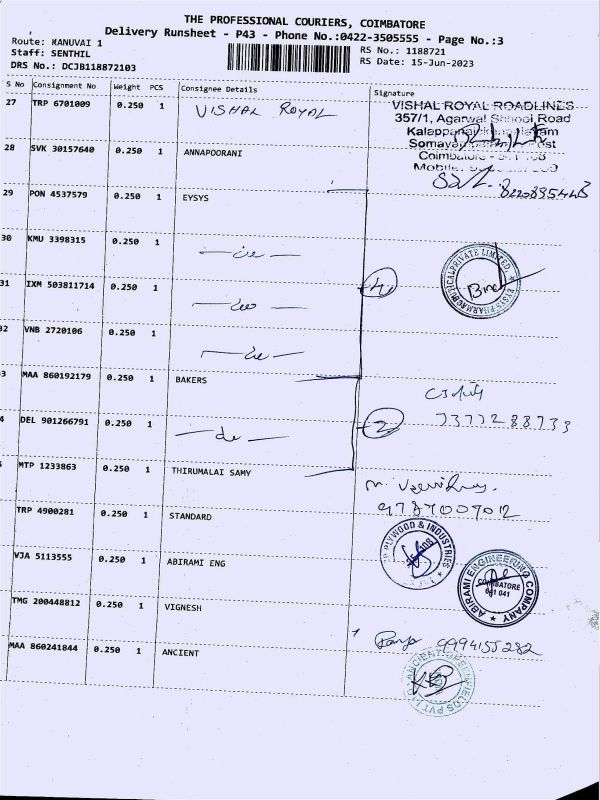 THE PROFESSIONAL COURIERS, COIMBATORE
Delivery Runsheet - P43 - Phone No.:0422-3505555 - Page No.:3
Route: KANUVAI 1
Staff: SENTHIL
DRS No.: DCJB118872103
RS No.: 1188721
RS Date: 15-Jun-2023
S No Consignment No Weight PCS Consignee Details Signature
27 TRP 6701009 0.250 1 VISHAL ROYAL
VISHAL ROYAL ROADLINES
357/1, Agarwal School Road
Coimbatore
Mobile
28 SVK 30157640 0.250 1 ANNAPOORANI
29 PON 4537579 0.250 1 EYSYS
30 KMU 3398315 0.250 1
31 IXM 503811714 0.250 1
4
32 VNB 2720106 0.250 1
MAA 860192179 0.250 1 BAKERS
DEL 901266791 0.250 1
2
7377288733
MTP 1233863 0.250 1 THIRUMALAI SAMY
TRP 4900281 0.250 1 STANDARD
PLYWOOD & INDUSTRIES
VJA 5113555 0.250 1 ABIRAMI ENG
ABIRAMI ENGINEERING COMPANY
COIMBATORE
641 041
TMG 200448812 0.250 1 VIGNESH
9994155282
MAA 860241844 0.250 1 ANCIENT